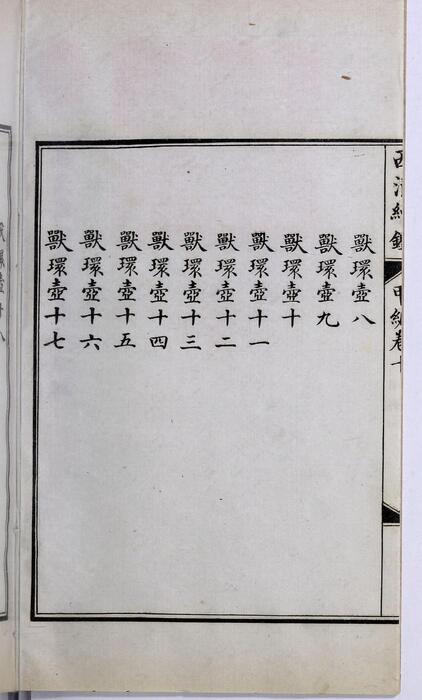 西清續鑑 甲編卷十
獸環壺八
獸環壺九
獸環壺十
獸環壺十一
獸環壺十二
獸環壺十三
獸環壺十四
獸環壺十五
獸環壺十六
獸環壺十七